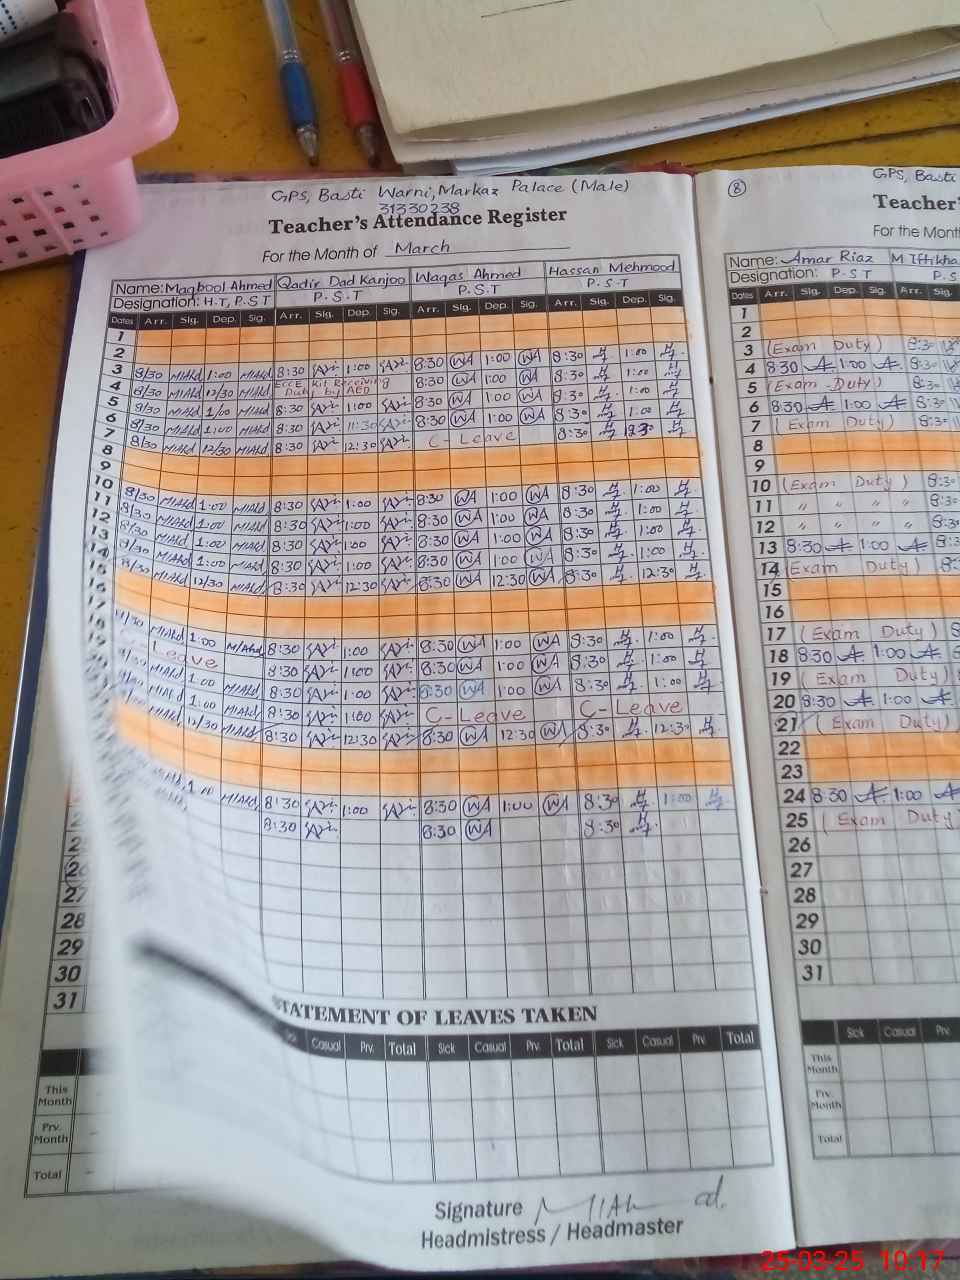 GPS, Basti Warni, Markaz Palace (Male)
31330238
Teacher's Attendance Register
For the Month of March
Name: Maqbool Ahmed Qadir Dad Kanjoo Waqas Ahmed Hassan Mehmood
Designation: H.T, P.S.T P.S.T P.S.T P.S.T
Dates Arr. Sig. Dep. Sig. Arr. Sig. Dep. Sig. Arr. Sig. Dep. Sig. Arr. Sig. Dep. Sig.
1
2
3 8/30 MIAhd 1:00 MIAhd 8:30 1:00 8:30 WA 1:00 WA 8:30 1:00
4 8/30 MIAhd 12/30 MIAhd ECCE Kit Receiving Duty by AEO 8:30 WA 1:00 WA 8:30 1:00
5 8/30 MIAhd 1/00 MIAhd 8:30 1:00 8:30 WA 1:00 WA 8:30 1:00
6 8/30 MIAhd 1:00 MIAhd 8:30 11:30 8:30 WA 1:00 WA 8:30 1:00
7 8/30 MIAhd 12/30 MIAhd 8:30 12:30 C-Leave 8:30
8
9
10 8/30 MIAhd 1:00 MIAhd 8:30 1:00 8:30 WA 1:00 WA 8:30 1:00
11 8/30 MIAhd 1:00 MIAhd 8:30 1:00 8:30 WA 1:00 WA 8:30 1:00
12 8/30 MIAhd 1:00 MIAhd 8:30 1:00 8:30 WA 1:00 WA 8:30 1:00
13 8/30 MIAhd 1:00 MIAhd 8:30 1:00 8:30 WA 1:00 WA 8:30 1:00
14 8/30 MIAhd 12/30 MIAhd 8:30 12:30 8:30 WA 12:30 WA 8:30 12:30
15
16
17 MIAhd 1:00 MIAhd 8:30 1:00 8:30 WA 1:00 WA 8:30 1:00
18 Leave 8:30 1:00 8:30 WA 1:00 WA 8:30 1:00
19 MIAhd 1:00 MIAhd 8:30 1:00 8:30 WA 1:00 WA 8:30 1:00
MIAhd 1:00 MIAhd 8:30 1:00 C-Leave C-Leave
MIAhd 12/30 MIAhd 8:30 12:30 8:30 WA 12:30 WA 8:30 12:30
MIAhd 8:30 1:00 8:30 WA 1:00 WA 8:30 1:00
8:30 8:30 WA 8:30
26
27
28
29
30
31
STATEMENT OF LEAVES TAKEN
Casual Prv. Total Sick Casual Prv. Total Sick Casual Prv. Total
This Month
Prv. Month
Total
Signature
Headmistress / Headmaster
8
GPS, Basti
Teacher'
For the Mont
Name: Amar Riaz M Iftikha
Designation: P.S.T P.S
Dates Arr. Sig. Dep. Sig. Arr. Sig.
1
2
3 (Exam Duty) 8:30
4 8:30 1:00 8:30
5 (Exam Duty) 8:30
6 8:30 1:00 8:30
7 (Exam Duty) 8:30
8
9
10 (Exam Duty) 8:30
11 " " " " 8:30
12 " " " " 8:30
13 8:30 1:00 8:3
14 (Exam Duty) 8:
15
16
17 (Exam Duty) 8
18 8:30 1:00
19 (Exam Duty)
20 8:30 1:00
21 (Exam Duty)
22
23
24 8:30 1:00
25 (Exam Duty)
26
27
28
29
30
31
Sick Casual Prv.
This Month
Prv. Month
Total
25-03-25 10:17